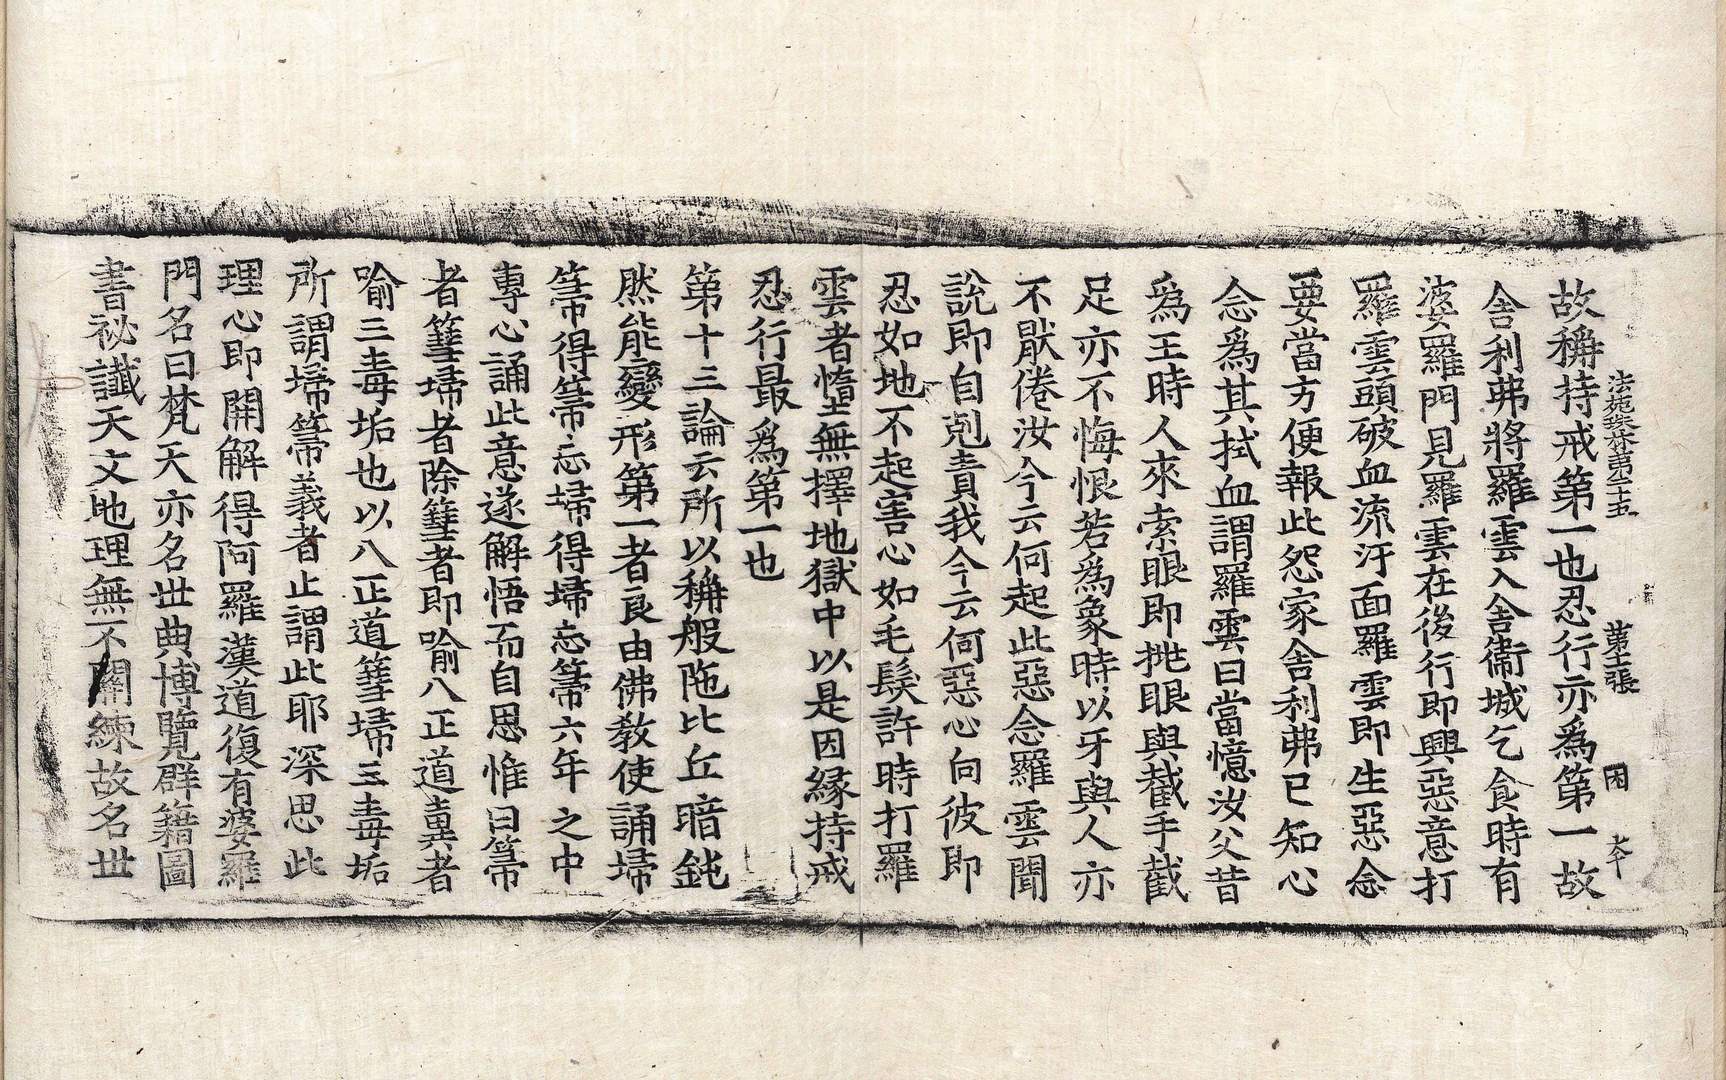 故稱持戒第一也忍行亦爲第一故
法苑珠林第二十五 第十二張 因
舍利弗將羅雲入舍衛城乞食時有
婆羅門見羅雲在後行即興惡意打
羅雲頭破血流汙面羅雲即生惡念
要當方便報此怨家舍利弗已知心
念爲其拭血謂羅雲曰當憶汝父昔
爲王時人來索眼即挑眼與截手截
足亦不悔恨若爲象時以牙與人亦
不猒倦汝今云何起此惡念羅雲聞
說即自剋責我今云何惡心向彼即
忍如地不起害心如毛髮許時打羅
雲者惰無擇地獄中以是因縁持戒
忍行最爲第一也
第十三論云所以稱般陁比丘暗鈍
然能變形第一者良由佛教使誦埽
箒得箒忘埽得埽忘箒六年之中
專心誦此意遂解悟而自思惟曰箒
者篲埽者除篲者即喻八正道糞者
喻三毒垢也以八正道篲埽三毒垢
所謂埽箒義者止謂此耶深思此
理心即開解得阿羅漢道復有婆羅
門名曰梵天亦名世典博覽群籍圖
書祕讖天文地理無不關練故名世